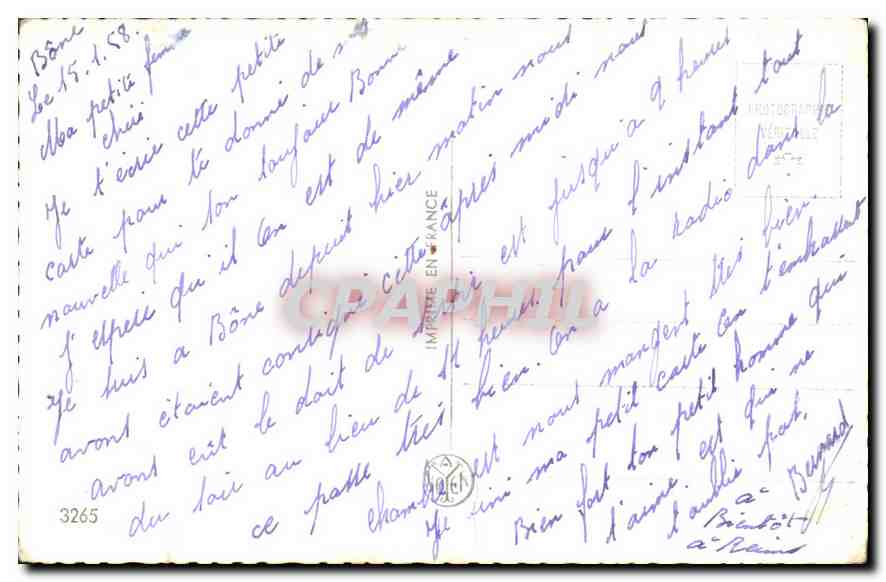 Bône
Le 15.1.58.
Ma petite femme
chéri
Je t'écrie cette petite
carte pour te donne de mes
nouvelle qui son toujour Bonne
J'espere qu'il en est de même
Je suis a Bône depuis hier matin nous
avons étaient consigné cette après midi nous
avons eût le doit de sortir est jusqu'a 9 heures
du soir au lieu de 11 heures pour l'instant tout
ce passe très bien. On a la radio dans la
chambre est nous mangent très bien.
Je fini ma petit carte en t'embrassant
Bien fort ton petit homme qui
t'aime est qui ne
t'oublie pas.
Bernard
a
Bientôt
a Reims
IMPRIMÉ EN FRANCE
PHOTOGRAPHIE
VÉRITABLE
3265
CPAPHIL